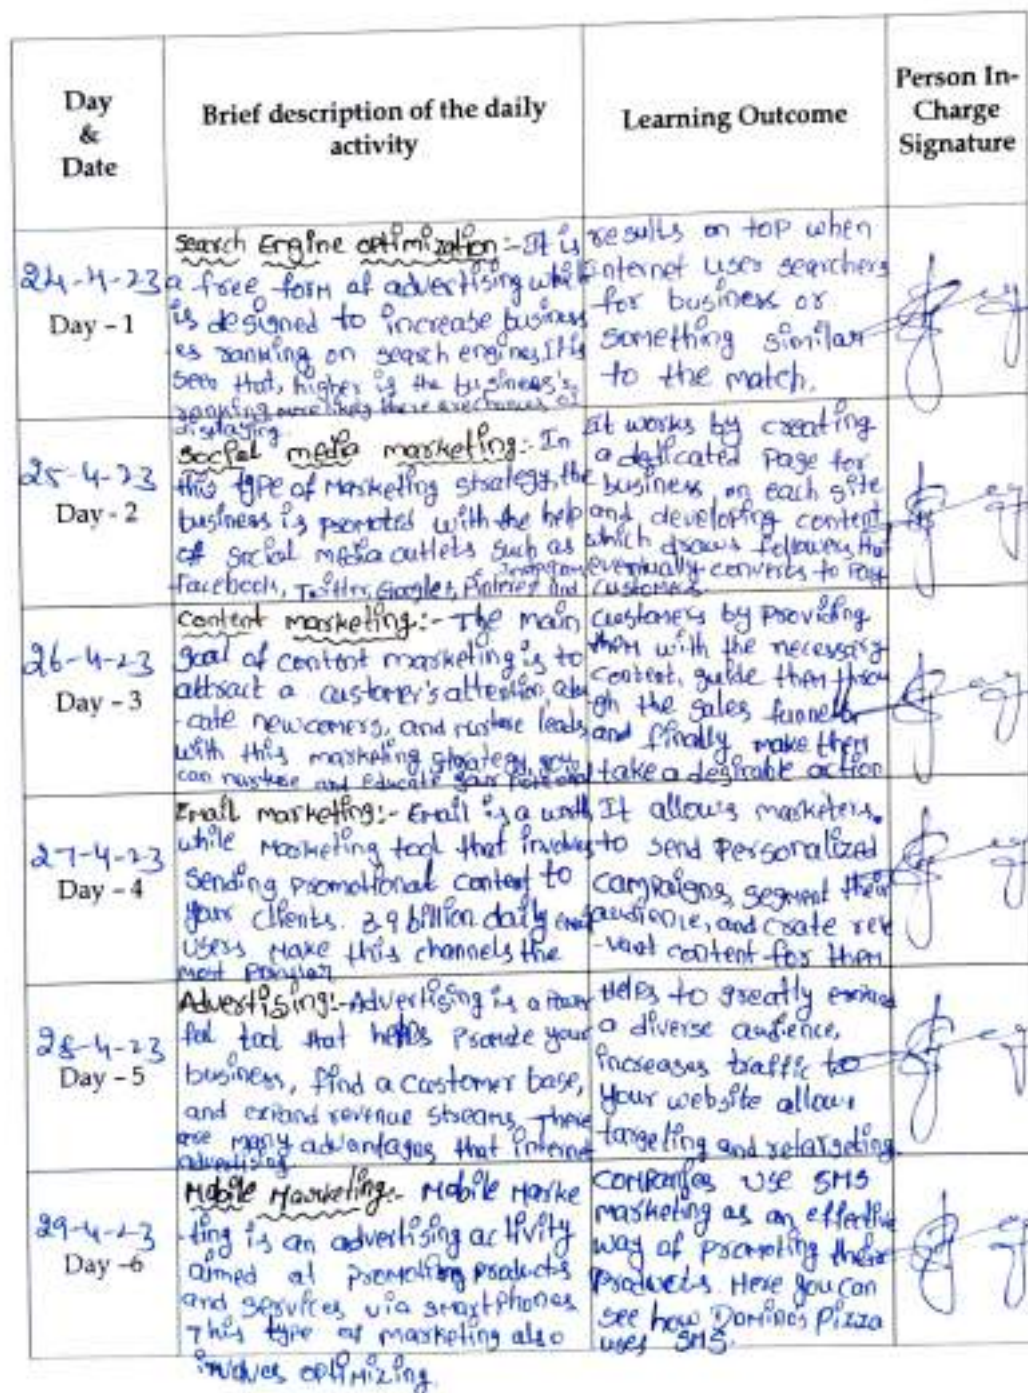 Day
&
Date
Brief description of the daily
activity
Learning Outcome
Person In-
Charge
Signature
24-4-23
Day - 1
Search Engine optimization:- It is
a free form of advertising which
is designed to increase business
es ranking on search engines, It is
seen that, higher is the business's
ranking more likely there are chances of
displaying.
results on top when
internet user searchers
for business or
something similar
to the match.
25-4-23
Day - 2
Social media marketing:- In
this type of Marketing strategy, the
business is promoted with the help
of social media outlets such as
Facebook, Twitter, Google+, Pinterest and
Instagram
it works by creating
a dedicated Page for
business on each site
and developing content
which draws followers that
eventually converts to Pay
customers
26-4-23
Day - 3
Content marketing:- The main
goal of content marketing is to
attract a customer's attention, edu
-cate newcomers, and nurture leads
with this marketing strategy, you
can nurture and educate your potential
customers by providing
them with the necessary
content, guide them throu
gh the sales funnel
and finally make them
take a desirable action
27-4-23
Day - 4
Email marketing:- Email is a worth
while Marketing tool that involves
sending promotional content to
your clients. 3.9 billion daily email
users make this channels the
most Popular
It allows marketers.
to send Personalized
campaigns, segment their
audience, and crate rele
-vant content for them
28-4-23
Day - 5
Advertising:- Advertising is a Power
ful tool that helps Promote your
business, find a customer base,
and expand revenue streams, There
are many advantages that internet
advertising.
Helps to greatly expand
a diverse audience,
increases traffic to
your website allows
targeting and retargeting.
29-4-23
Day -6
Mobile Marketing:- Mobile Marke
-ting is an advertising activity
aimed at promoting products
and services via smartphones
This type of marketing also
involves optimizing.
Companies use SMS
marketing as an effective
way of promoting their
Products. Here you can
see how Domino's Pizza
uses SMS.